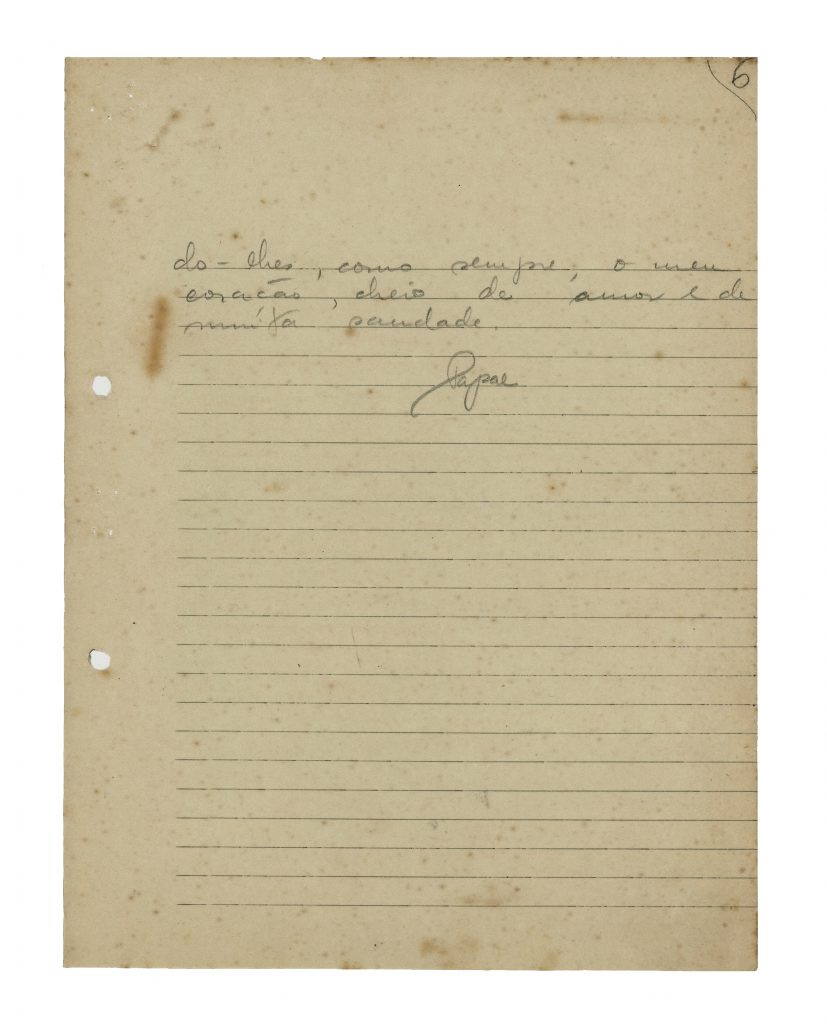 6
do-lhes, como sempre, o meu
coração, cheio de amor e de
muita saudade.
Papae